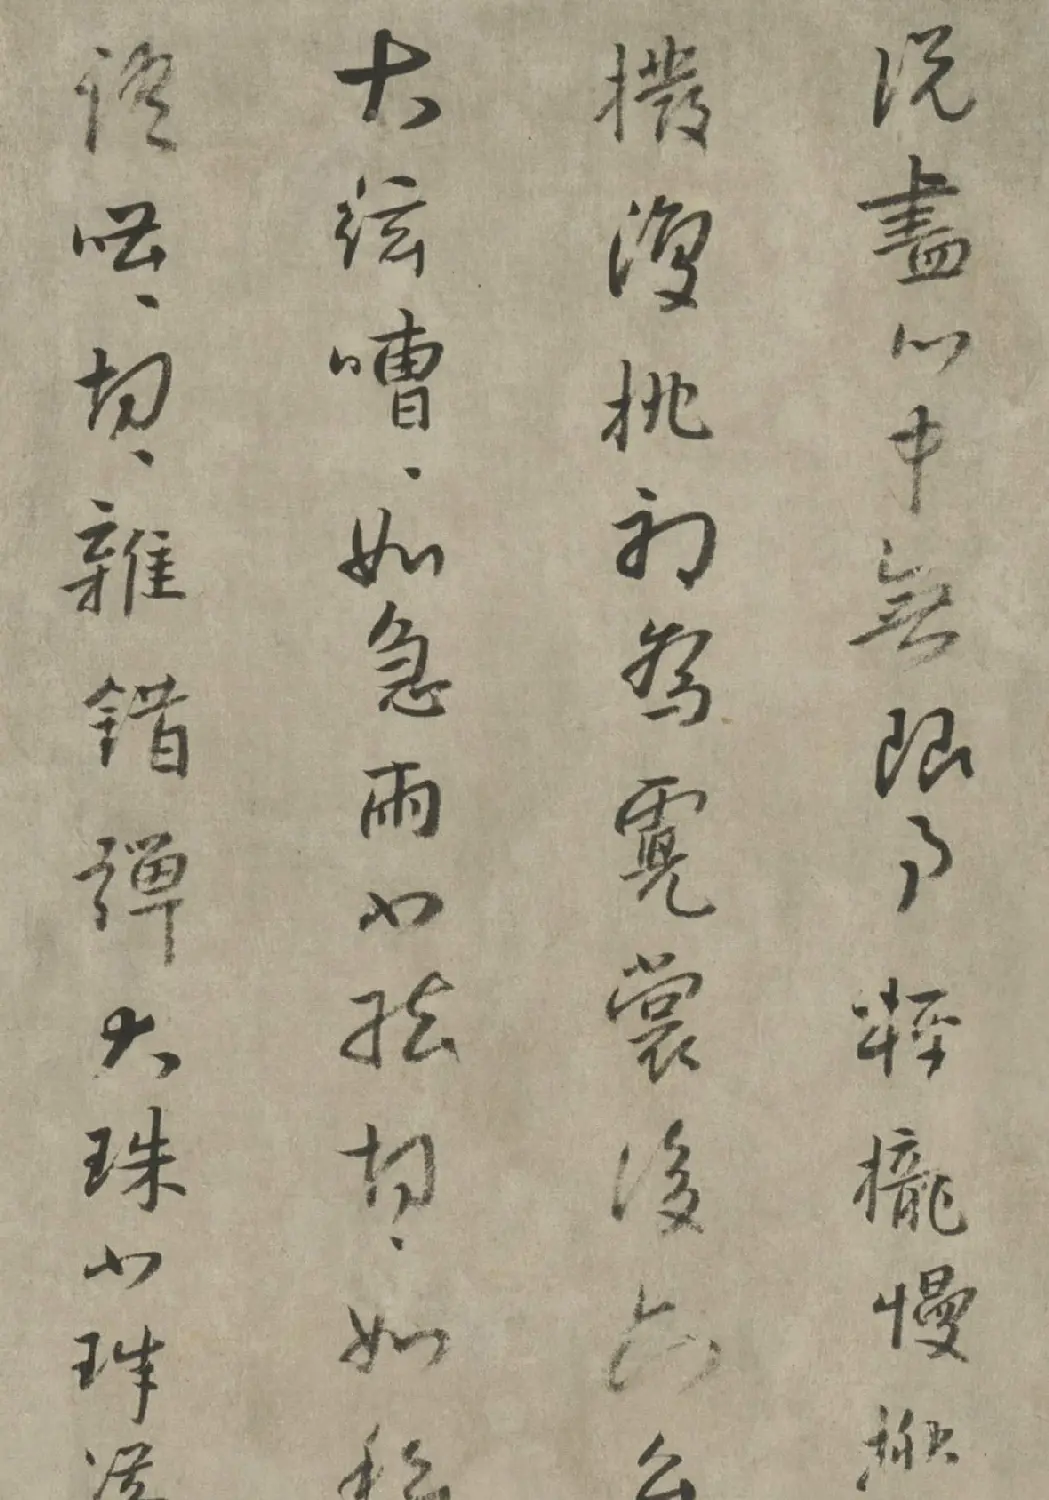 説盡心中無限事輕攏慢撚
撥復挑初為霓裳後六么
大絃嘈、如急雨小絃切、如私
語嘈、切、雜錯彈大珠小珠落